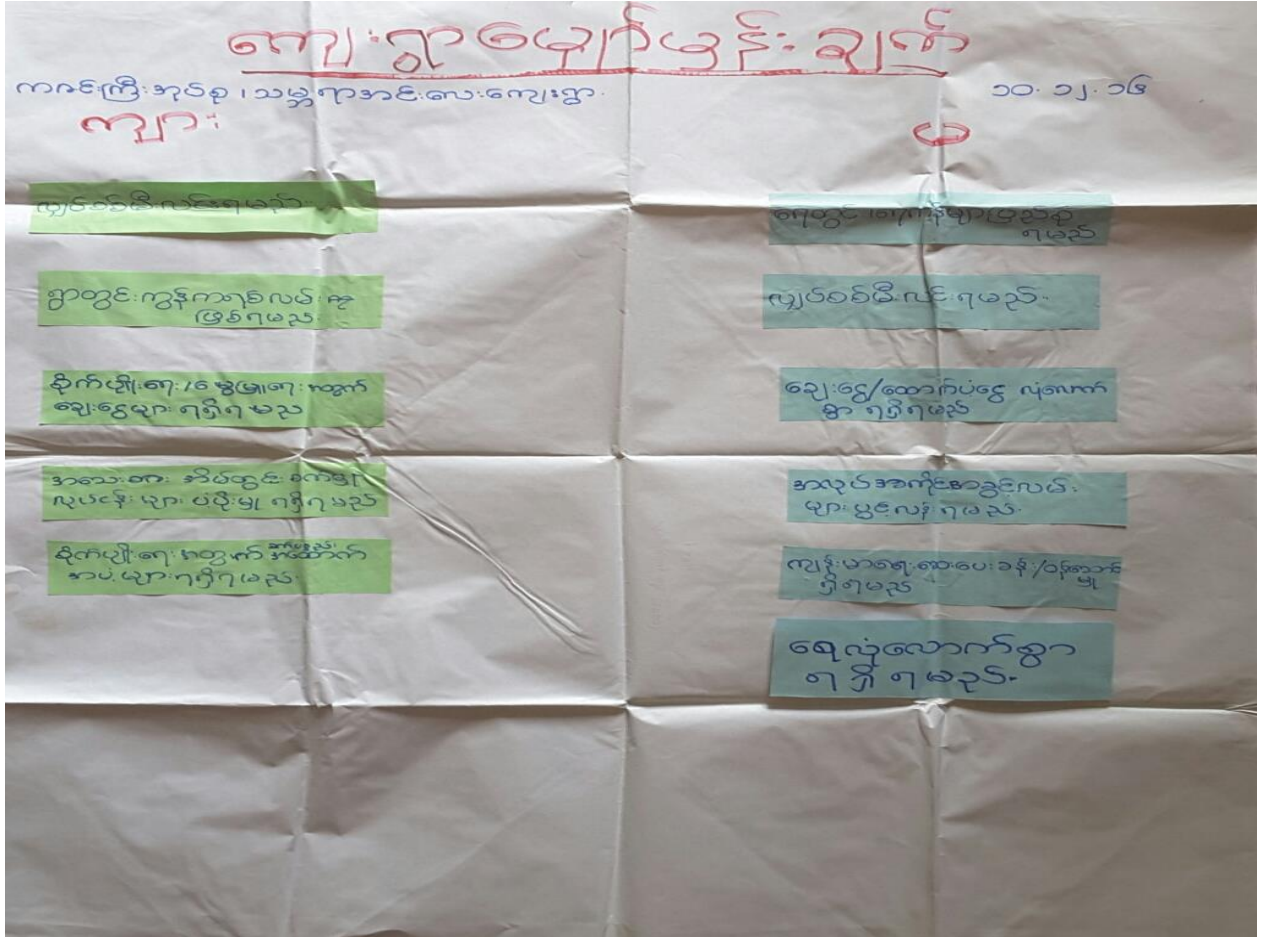 ကျေးရွာမျှော်မှန်းချက်
ကဇင်းကြီးအုပ်စု၊ သမ္ဘရာအင်းလေးကျေးရွာ
၁၀.၁၂.၁၆
ကျား
မ
လျှပ်စစ်မီးလင်းရမည်.
ရွာတွင်းကွန်ကရစ်လမ်း
ဖြစ်ရမည်.
စိုက်ပျိုးရေး/မွေးမြူရေးအတွက်
ချေးငွေများ ရရှိရမည်
အသေးစား အိမ်တွင်းစက်မှု
လုပ်ငန်းများ ပံ့ပိုးမှု ရရှိရမည်
စိုက်ပျိုးရေးအတွက် အထောက်
အပံ့များရရှိရမည်.
ရေတွင်း၊ရေကန်များပြည့်စုံ
ရမည်
လျှပ်စစ်မီးလင်းရမည်.
ချေးငွေ/ထောက်ပံ့ငွေ လုံလောက်
စွာ ရရှိရမည်
အလုပ်အကိုင်အခွင့်လမ်း
များပွင့်လန်းရမည်.
ကျန်းမာရေးဆေးပေးခန်း/ဝန်ဆောင်မှု
ရှိရမည်
ရေလုံလောက်စွာ
ရရှိရမည်.